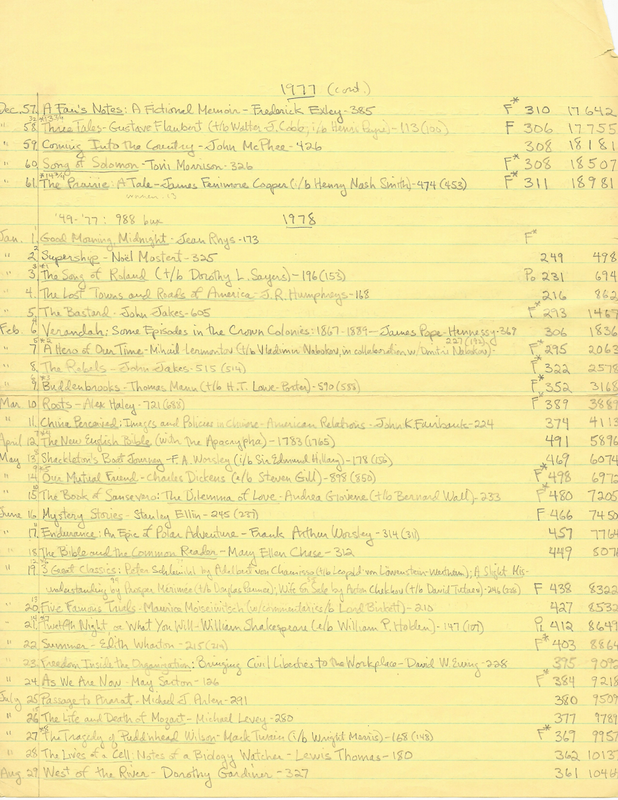 1977 (cont.)
Dec. 57. A Fan's Notes: A Fictional Memoir - Frederick Exley - 385 F* 310 17642
" 58 Three Tales - Gustave Flaubert (t/b Walter J. Cobb; i/b Henri Peyre) - 113 (120) F 306 17755
" 59 Coming Into the Country - John McPhee - 426 308 18181
" 60 Song of Solomon - Toni Morrison - 326 F* 308 18507
" 61 The Prairie: A Tale - James Fenimore Cooper (i/b Henry Nash Smith) - 474 (453) F* 311 18981
'49-'77: 988 1978
Jan. 1. Good Morning, Midnight - Jean Rhys - 173 F*
" 2 Supership - Noël Mostert - 325 249 498
" 3. The Song of Roland (t/b Dorothy L. Sayers) - 196 (153) Po 231 694
" 4. The Lost Towns and Roads of America - J.R. Humphreys - 168 216 862
" 5. The Bastard - John Jakes - 605 F* 293 1467
Feb 6. Verandah: Some Episodes in the Crown Colonies: 1867-1889 - James Pope-Hennessy - 369 306 1836
" 7 A Hero of Our Time - Mihail Lermontov (t/b Vladimir Nabokov in collaboration w/ Dmitri Nabokov) - 227 F* 295 2063
" 8. The Rebels - John Jakes - 515 (514) F* 322 2578
" 9. Buddenbrooks - Thomas Mann (t/b H.T. Lowe-Porter) - 590 (588) F* 352 3168
Mar 10 Roots - Alex Haley - 721 (688) F* 389 3889
" 11. China Perceived: Images and Policies in Chinese-American Relations - John K Fairbank - 224 374 4113
April 12. The New English Bible (with the Apocrypha) - 1783 (1765) 491 5896
May 13. Shackleton's Boat Journey - F.A. Worsley (i/b Sir Edmund Hillary) - 178 469 6074
" 14. Our Mutual Friend - Charles Dickens (e/b Steven Gill) - 898 (850) F* 498 6972
" 15 The Book of Sansevero: The Dilemma of Love - Andrea Giovene (t/b Bernard Wall) - 233 F* 480 7205
June 16. Mystery Stories - Stanley Ellin - 245 (237) F 466 7450
" 17. Endurance: An Epic of Polar Adventure - Frank Arthur Worsley - 314 (311) 457 7764
" 18. The Bible and the Common Reader - Mary Ellen Chase - 312 449
" 19 3 Great Classics: Peter Schlemihl by Adelbert von Chamisso (t/b Leopold von Löwenstein-Wertheim); A Slight Mis-
understanding by Prosper Merimee (t/b Douglas Parmee); Wife for Sale by Anton Chekhov (t/b David Tutaev) - 246 F 438 8322
" 20. Five Famous Trials - Maurice Moiseiwitsch (w/commentaries b/ Lord Birkett) - 210 427 8532
" 21. Twelfth Night or What You Will - William Shakespeare (e/b William P. Holden) - 147 (107) 412 8649
" 22. Summer - Edith Wharton - 215 F* 403 8864
" 23. Freedom Inside the Organization: Bringing Civil Liberties to the Workplace - David W Ewing - 228 395 9092
" 24. As We Are Now - May Sarton - 126 F* 384 9218
July 25. Passage to Ararat - Michael J. Arlen - 291 380 9509
" 26. The Life and Death of Mozart - Michael Levey - 280 377 9789
" 27. The Tragedy of Pudd'nhead Wilson - Mark Twain (i/b Wright Morris) - 168 (148) F* 369 9957
" 28. The Lives of a Cell: Notes of a Biology Watcher - Lewis Thomas - 180 362 10137
Aug 29. West of the River - Dorothy Gardiner - 327 361 1046